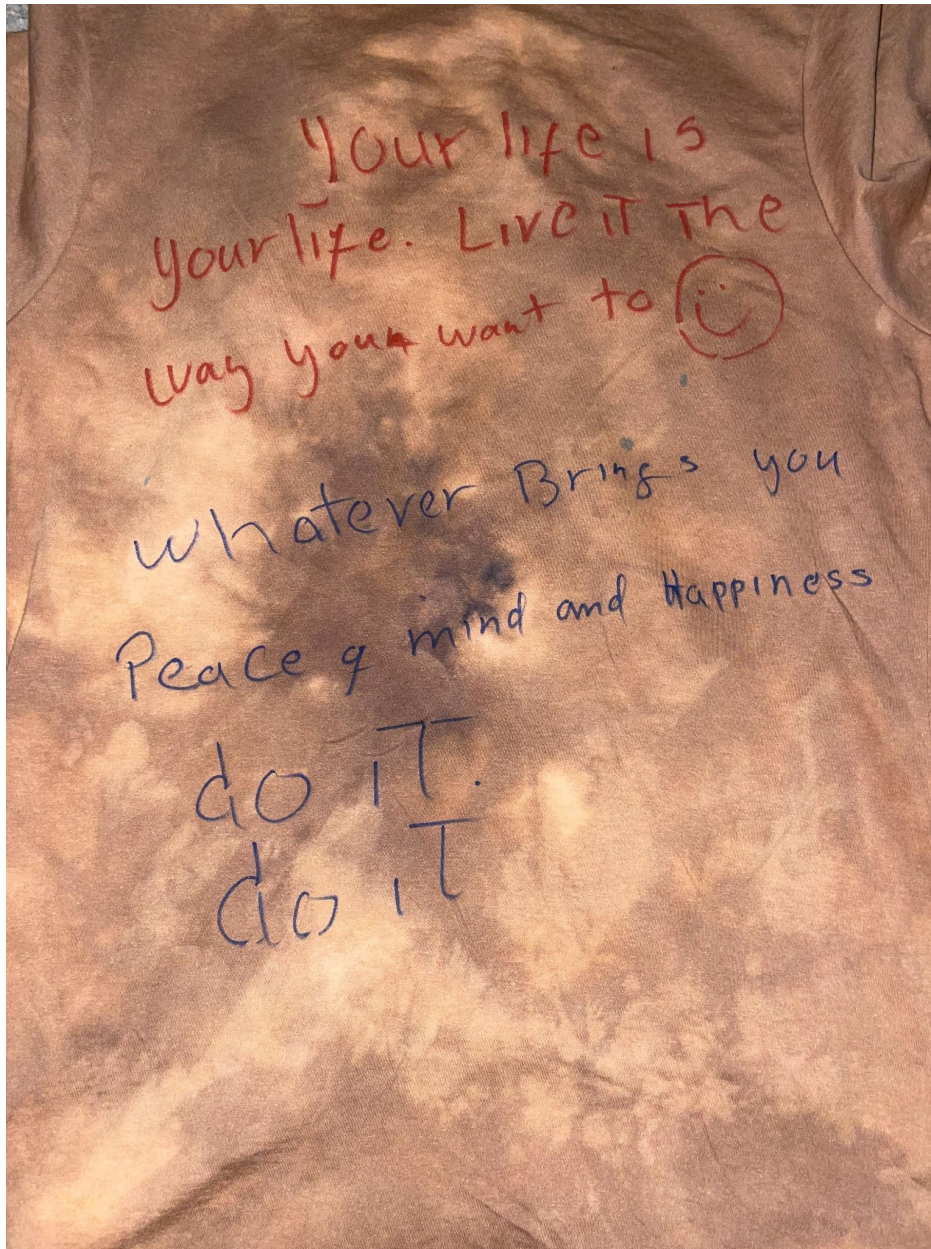 Your life is
your life. Live iT The
way you want to
whatever Brings you
Peace of mind and Happiness
do iT.
do iT